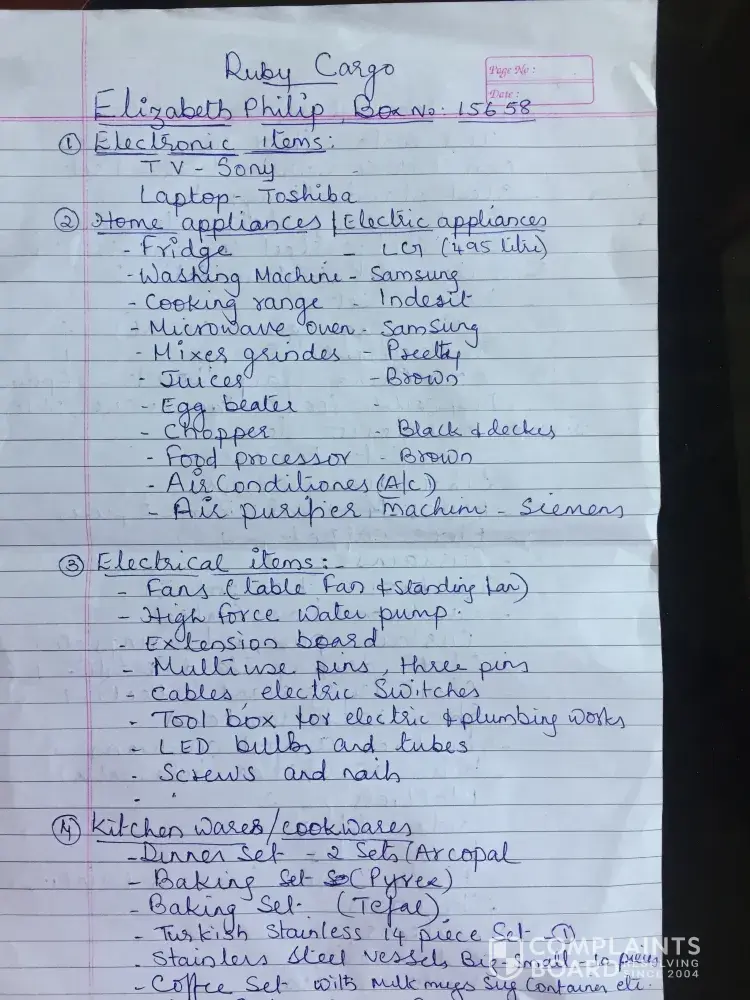 Ruby Cargo
Page No :
Date :
Elizabeth Philip, Box No: 15658
① Electronic items:
TV - Sony
Laptop - Toshiba
② Home appliances / Electric appliances
- Fridge - LG (495 litre)
- Washing Machine - Samsung
- Cooking range - Indesit
- Microwave oven - Samsung
- Mixer grinder - Preethy
- Juicer - Brown
- Egg beater -
- Chopper - Black & decker
- Food processor - Brown
- Air Conditioner (A/c)
- Air purifier machine - Siemens
③ Electrical items:-
- Fans (table Fan & standing fan)
- High force water pump.
- Extension board
- Multiuse pins, three pins
- Cables, electric Switches
- Tool box for electric & plumbing works
- LED bulbs and tubes
- Screws and nails
- .
④ Kitchen wares/cookwares
- Dinner Set - 2 Sets (Arcopal
- Baking Set (Pyrex)
- Baking Set. (Tefal)
- Turkish Stainless 14 piece Set - ①
- Stainless Steel vessels Big small
- Coffee Set with Milk mugs Sug Container etc.
COMPLAINTS
BOARD RESOLVING
SINCE 2004